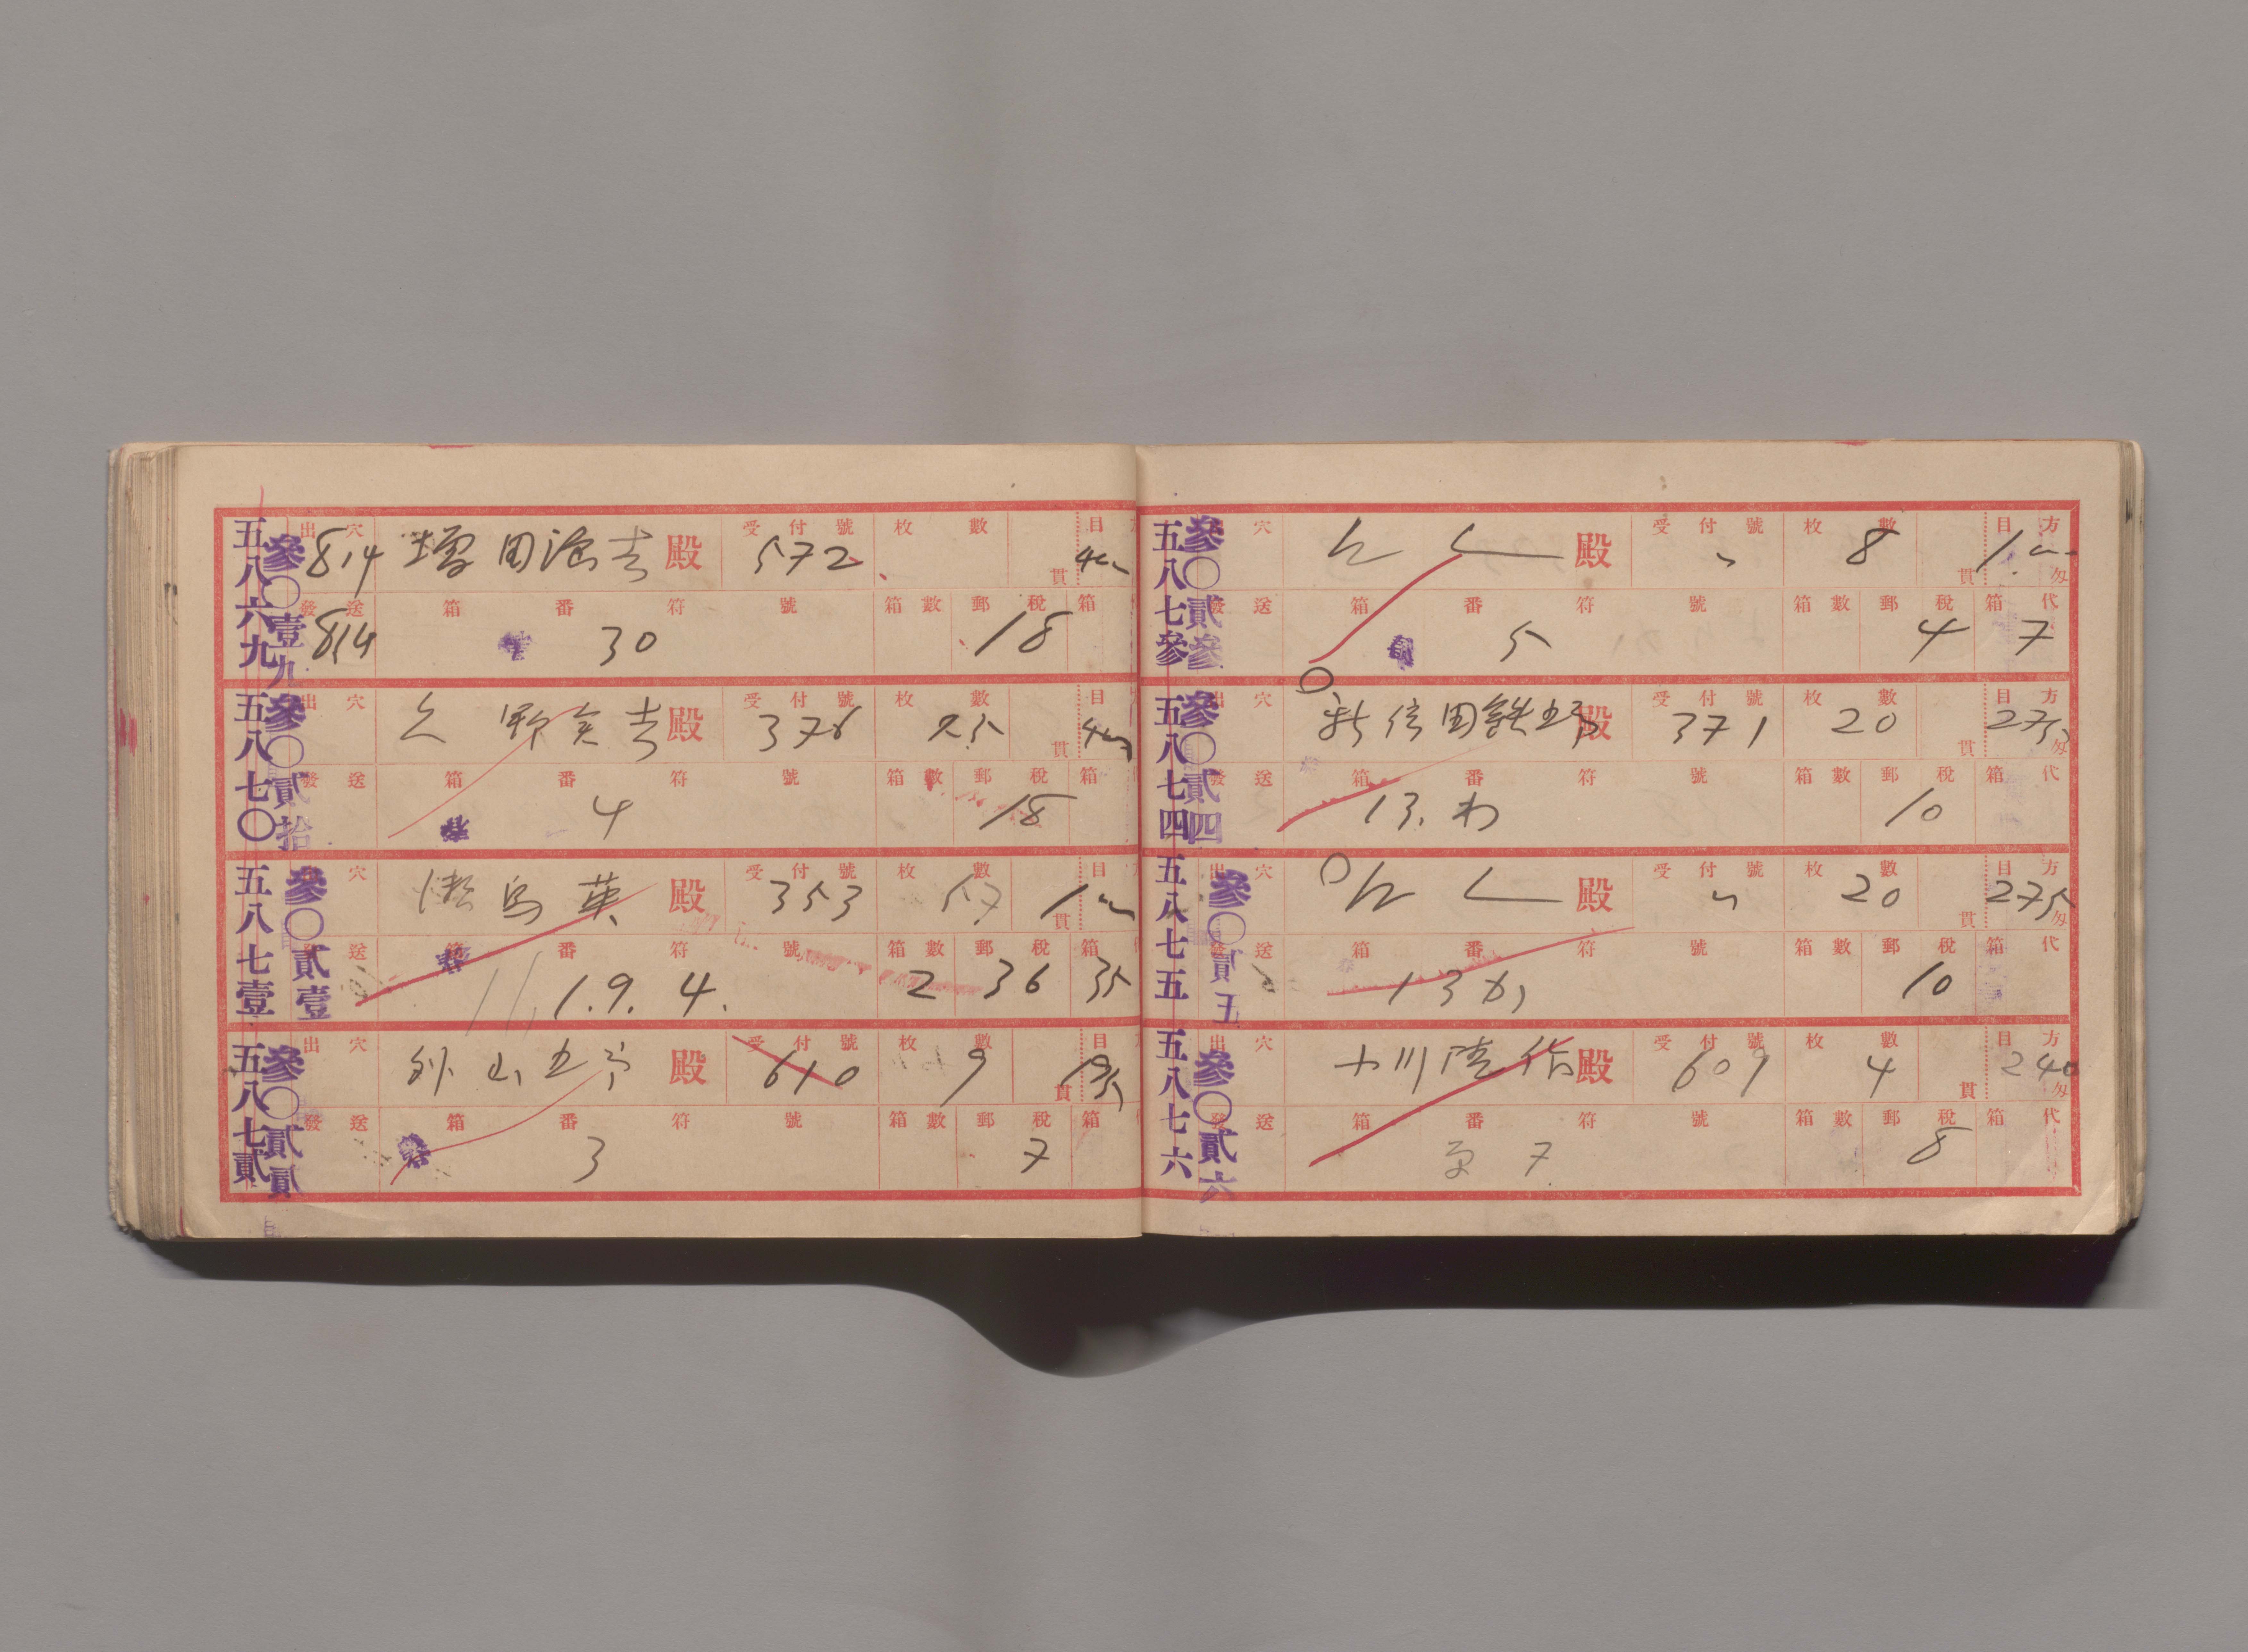 五八六九 參〇壹九
出穴 814 増田 吉 殿 受付號 572 枚數 貫 目
發送 814 箱番符號 30 箱數 郵税 18 箱
五八七〇 參〇貳拾
出穴 久野 吉 殿 受付號 376 枚數 25 貫 目
發送 箱番符號 4 箱數 郵税 18 箱
五八七壹 參〇貳壹
出穴 島 英 殿 受付號 353 枚數 57 貫 目
發送 箱番符號 1.9.4. 箱數 2 郵税 36 箱 35
五八七貳 參〇貳貳
出穴 外山 殿 受付號 610 枚數 9 貫 目
發送 箱番符號 3 箱數 郵税 7 箱
五八七參 參〇貳參
穴 殿 受付號 〃 枚數 8 貫 目方 匁
發送 箱番符號 5 箱數 郵税 4 箱代 7
五八七四 參〇貳四
出穴 新信田鉄 殿 受付號 371 枚數 20 貫 目方 275 匁
發送 箱番符號 13.わ 箱數 郵税 10 箱代
五八七五 參〇貳五
出穴 殿 受付號 〃 枚數 20 貫 目方 275 匁
發送 箱番符號 13か 箱數 郵税 10 箱代
五八七六 參〇貳六
出穴 小川陸作 殿 受付號 609 枚數 4 貫 目方 240 匁
發送 箱番符號 7 箱數 郵税 8 箱代